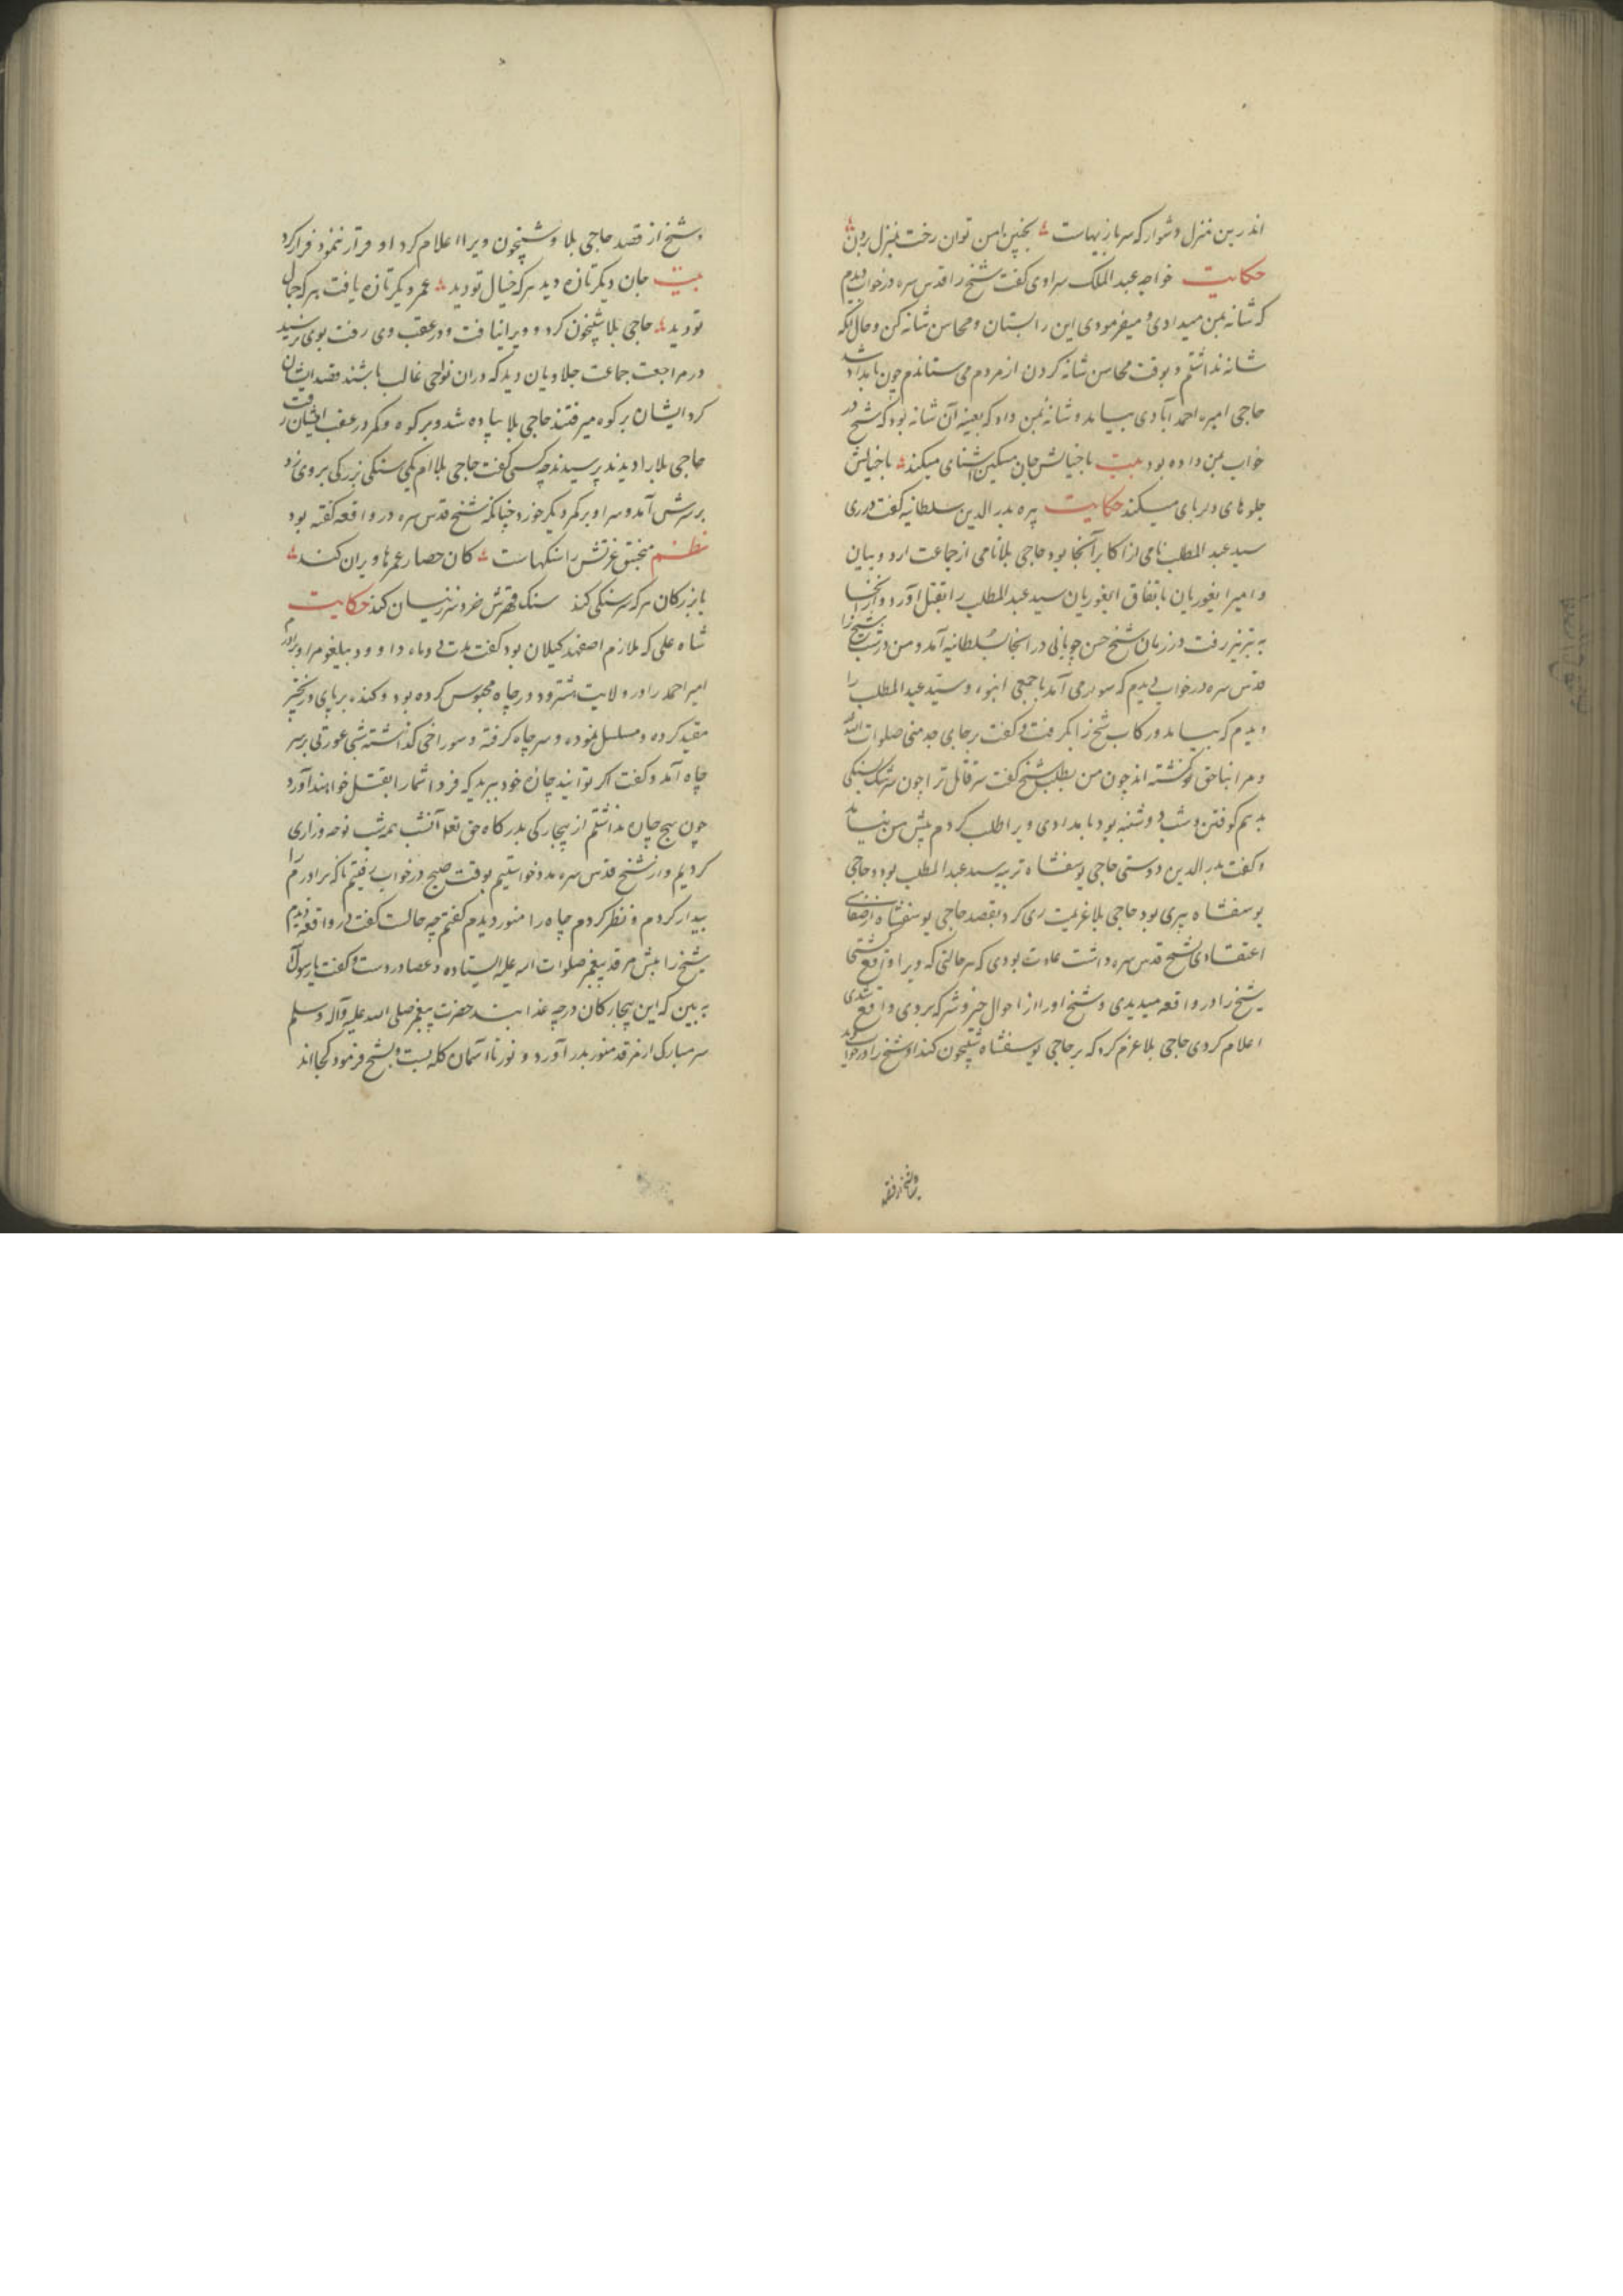 اندرین منزل دشوار که سر بازیهاست بچنین امن توان رخت بمنزل بردن
حکایت خواجه عبدالملک سراوی کفت شیخ را قدس سره در خواب دیدم
که شانه بمن میدادی و میفرمودی این را بستان و محاسن شانه کن و حال آنکه
شانه نداشتم و بوقت محاسن شانه کردن از مردم می ستاندم چون بامداد شد
حاجی امیره احمدآبادی بیامد و شانه بمن داد که بعینه آن شانه بود که شیخ در
خواب بمن داده بود بیت با خیالش جان مسکین آشنای میکند با خیالش
جلوهای دلربای میکند حکایت پیره بدرالدین سلطانیه کفت در ری
سید عبدالمطلب نامی از اکابر آنجا بود حاجی بلا نامی از جماعت اردوبیان
و امیر ایغوریان باتفاق ایغوریان سید عبدالمطلب را بقتل آورد و از آنجا
به تبریز رفت در زمان شیخ حسن چوپانی در آنجا بسلطانیه آمد و من در شب شیخ را
قدس سره در خواب دیدم که سوار می آمد با جمعی انبوه و سید عبدالمطلب را
دیدم که بیامد و رکاب شیخ را بکرفت و کفت بر جای جد منی صلوات الله
و مرا بناحق کشته اند چون من بطلب شیخ کفت سر قاتل ترا چون سر سک بسنکی
بدهم کوفتن و شب دوشنبه بود بامدادی ویرا طلب کردم پیش من بیامد
و کفت بدرالدین دوستی حاجی یوسفشاه تربیه سید عبدالمطلب بود و حاجی
یوسفشاه پیری بود حاجی بلا عزیمت ری کرد بقصد حاجی یوسفشاه از صفای
اعتقادی بشیخ قدس سره داشت عادت بودی که هر حالتی که ویرا واقع کشتی
شیخ را در واقعه میدیدی و شیخ او را از احوال خیر و شر که بر وی واقع شدی
اعلام کردی حاجی بلا عزم کرد که بر حاجی یوسفشاه شبیخون کند او شیخ را در خواب دید
و شیخ از قصد حاجی بلا و شبیخون ویرا اعلام کرد او قرار ننمود فرار کرد
بیت جان دیکر تازه دید هر که خیال تو دید عمر دیکر تازه یافت هر که جمال
تو دید حاجی بلا شبیخون کرد و ویرا نیافت و در عقب وی رفت بوی نرسید
در مراجعت جماعت جلاویان دید که در آن نواحی غالب باشند قصد ایشان
کرد ایشان بر کوه میرفتند حاجی بلا پیاده شد و بر کوه و کمر در عقب ایشان رفت
حاجی بلا را دیدند پرسیدند چه کسی کفت حاجی بلاام یکی سنکی بزرکی بر وی زد
بر سرش آمد و سر او بر کمر دیکر خورد چنانکه شیخ قدس سره در واقعه کفته بود
نظم منجنیق غیرتش را سنکهاست کان حصار عمرها ویران کند
با بزرکان هر که سرسنکی کند سنک قهرش خرد سر زینسان کند حکایت
شاه علی که ملازم اصفهبد کیلان بود کفت مرا و برادرم
امیر احمد را در ولایت هشترود در چاه محبوس کرده بود و کنده بر پای و زنجیر
مقید کرده و مسلسل نموده و سر چاه کرفته و سوراخی کذاشته شبی عورتی بر سر
چاه آمد و کفت اکر توانید چارۀ خود ببرید که فردا شما را بقتل خواهند آورد
چون هیچ چاره نداشتم از بیچارکی بدرکاه حق تعالی آنشب همه شب نوحه و زاری
کردیم و از شیخ قدس سره مدد خواستیم بوقت صبح در خواب رفتیم ناکه برادرم را
بیدار کردم و نظر کردم چاه را منور دیدم کفتم چه حالت کفت در واقعه دیدم
شیخ را پیش مرقد پیغمبر صلوات الله علیه ایستاده و عصا در دست و کفت یا رسول الله
به بین که این بیچارکان در چه عذابند حضرت پیغمبر صلی الله علیه وآله وسلم
سر مبارک از مرقد منور بدر آورد و نور تا آسمان کله بست و بشیخ فرمود کجااند